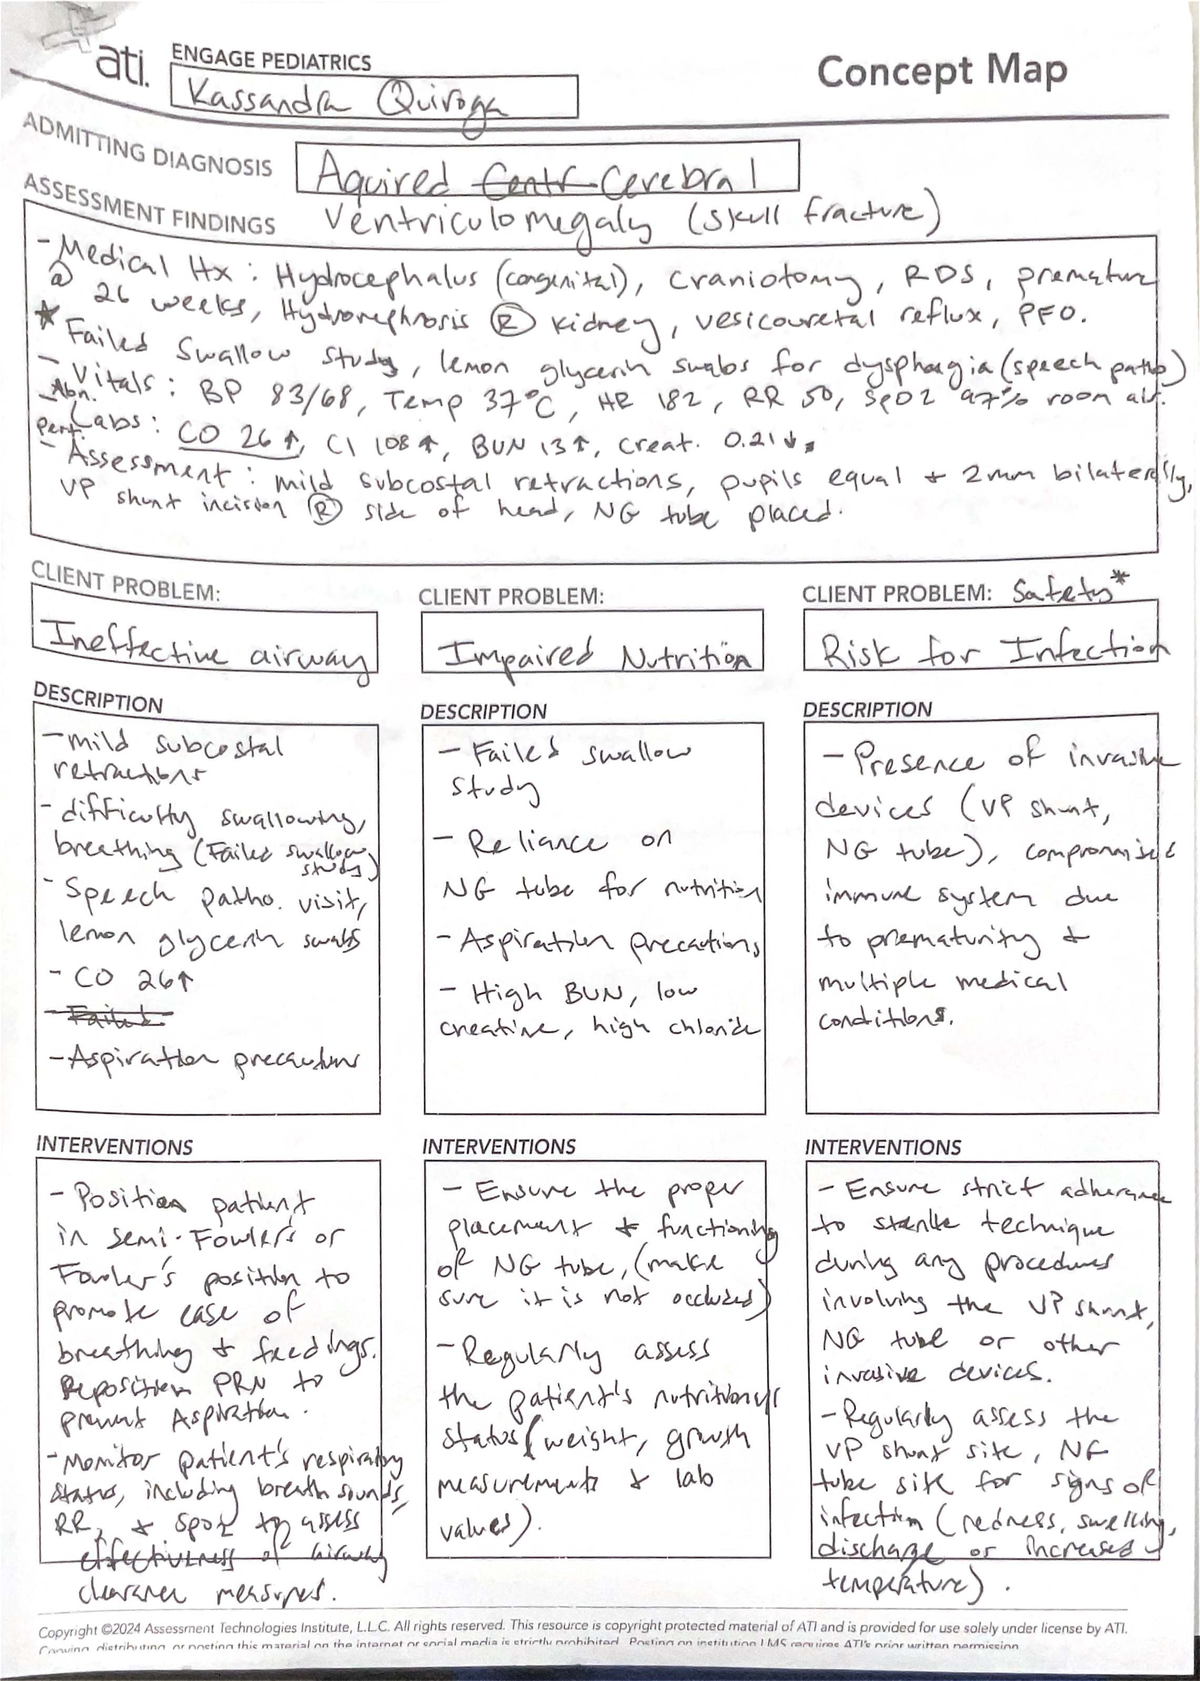 ati.
ENGAGE PEDIATRICS
Kassandra Quiroga
Concept Map
ADMITTING DIAGNOSIS
Aquired Centr Cerebral
Ventriculomegaly (skull fracture)
ASSESSMENT FINDINGS
- Medical Hx: Hydrocephalus (congenital), craniotomy, RDS, premature
@ 26 weeks, Hydronephrosis Ⓡ kidney, vesicouretal reflux, PFO.
* Failed Swallow Study, lemon glycerin swabs for dysphagia (speech patho)
- Vitals: BP 83/68, Temp 37°C, HR 182, RR 50, SpO2 97% room air.
Abn.
Pert. Labs: CO 26↑, Cl 108↑, BUN 13↑, Creat. 0.21↓.
- Assessment: mild subcostal retractions, pupils equal + 2mm bilaterally,
VP shunt incision Ⓡ side of head, NG tube placed.
CLIENT PROBLEM:
Ineffective airway
DESCRIPTION
- mild subcostal
retractions
- difficulty swallowing,
breathing (Failed swallow
study)
- Speech patho. visit,
lemon glycerin swabs
- CO 26↑
- Failed
- Aspiration precautions
INTERVENTIONS
- Position patient
in semi-Fowler's or
Fowler's position to
promote ease of
breathing + feedings.
Reposition PRN to
prevent Aspiration.
- Monitor patient's respiratory
status, including breath sounds,
RR, + SpO2 to assess
effectiveness of airway
clearance measures.
CLIENT PROBLEM:
Impaired Nutrition
DESCRIPTION
- Failed swallow
study
- Reliance on
NG tube for nutrition
- Aspiration precautions
- High BUN, low
creatine, high chloride
INTERVENTIONS
- Ensure the proper
placement + functioning
of NG tube, (make
sure it is not occluded)
- Regularly assess
the patient's nutritional
status (weight, growth
measurements + lab
values).
CLIENT PROBLEM: Safety*
Risk for Infection
DESCRIPTION
- Presence of invasive
devices (VP shunt,
NG tube), compromised
immune system due
to prematurity +
multiple medical
conditions.
INTERVENTIONS
- Ensure strict adherance
to sterile technique
during any procedures
involving the VP shunt,
NG tube or other
invasive devices.
- Regularly assess the
VP shunt site, NG
tube site for signs of
infection (redness, swelling,
discharge or increased
temperature).
Copyright ©2024 Assessment Technologies Institute, L.L.C. All rights reserved. This resource is copyright protected material of ATI and is provided for use solely under license by ATI.
Copying, distributing, or posting this material on the internet or social media is strictly prohibited. Posting on institution LMS requires ATI's prior written permission